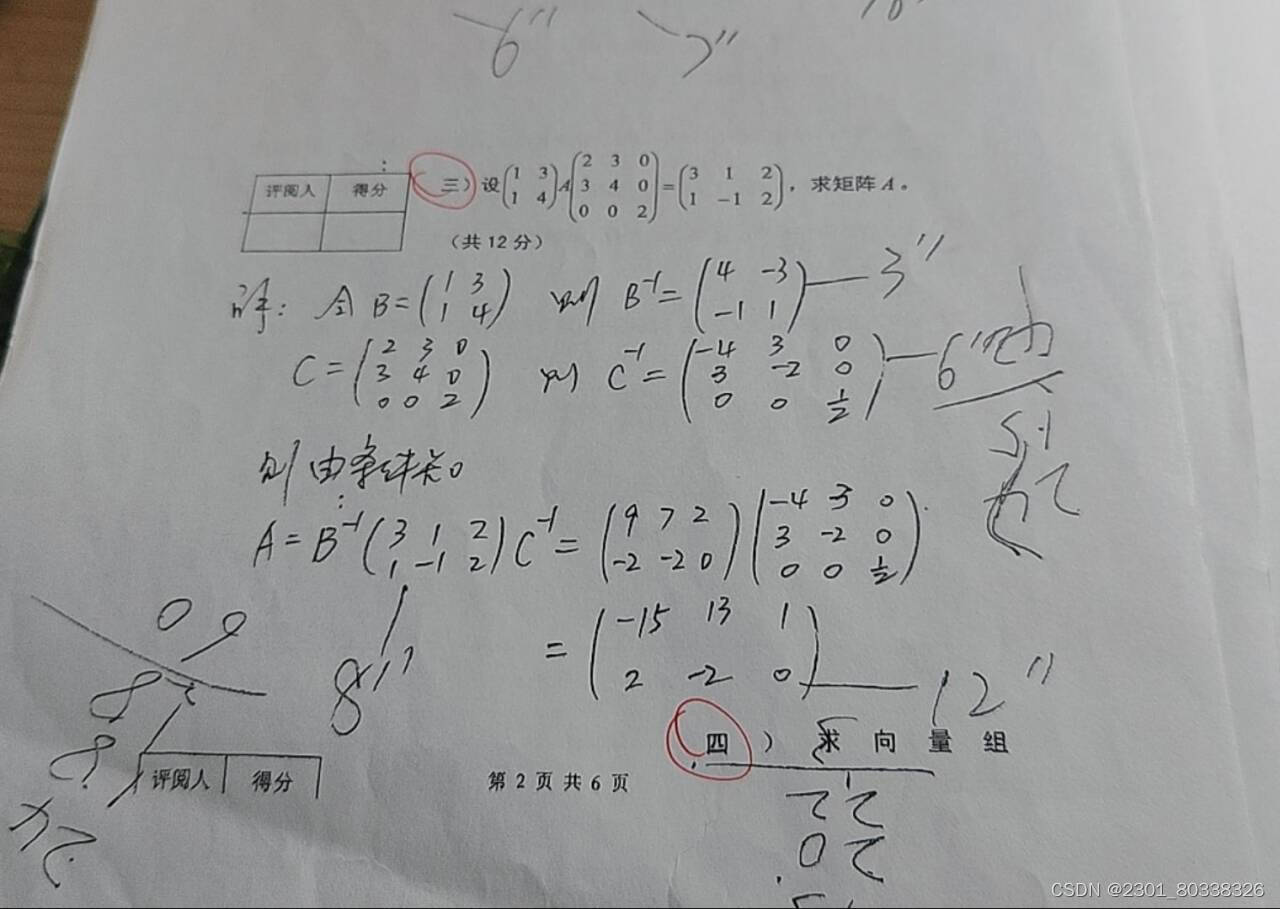 6″ 7″
评阅人 得分
三）设(1 3; 1 4)A(2 3 0; 3 4 0; 0 0 2)=(3 1 2; 1 −1 2)，求矩阵A。
（共12分）
解：令 B=(1 3; 1 4) 则 B⁻¹=(4 -3; -1 1) 3″
C=(2 3 0; 3 4 0; 0 0 2) 则 C⁻¹=(-4 3 0; 3 -2 0; 0 0 1/2) 6″
则由条件知
A=B⁻¹(3 1 2; 1 -1 2)C⁻¹=(9 7 2; -2 -2 0)(-4 3 0; 3 -2 0; 0 0 1/2)
8″
=(-15 13 1; 2 -2 0) 12″
四）求向量组
评阅人 得分
第2页共6页
CSDN @2301_80338326